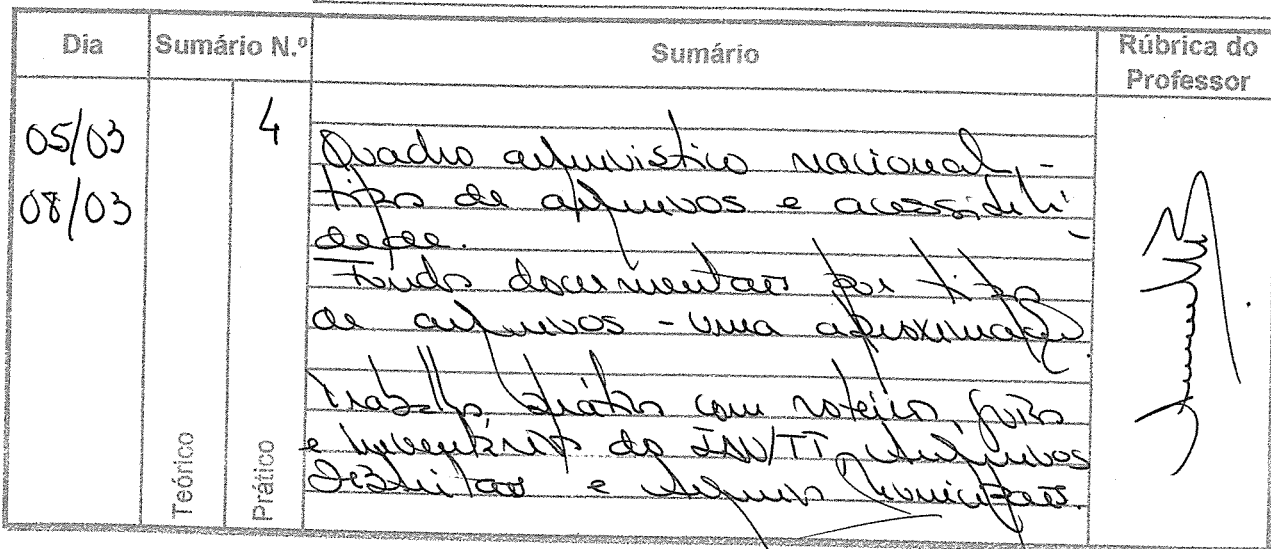 Dia
Sumário N.º
Sumário
Rúbrica do
Professor
05/03
08/03
4
Quadro arquivístico nacional, -
tipo de arquivos e acessibili-
dade.
Fundos documentais por tipo
de arquivos - uma aproximação.
Trabalho prático com roteiros, guias
e inventários do IAN/TT, Arquivos
Distritais e Arquivos Municipais.
Teórico
Prático